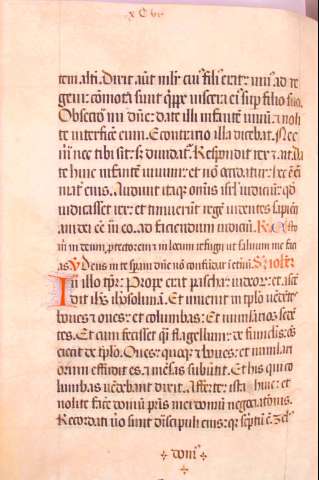 x C vi
tem alti. Dixit aūt mlr̄ cui᷒ fili᷒ erat: uiu᷒ ad re
gem: cōmota sunt q̄ppe uiscera ei᷒ sr̄p filio suo.
Obsecro mi dn̄e: date illi infantē uiuū: ⁊ noli
te interficē eum. Econtrario illa dicebat. Nec
m̄ nec tibi sit: s; diuidat᷒. Respondit rex ⁊ ait. Da
te huic infantē uiuum: et nō occidatur: hec ē ei᷒
mat̄ eius. Audiuit itaq; om̄is isrl̄ iudiciū: qd̄
iudicasset rex: et timuerūt regē uidentes sapien
tiam dei eē in eo. ad faciendum iudiciū.
in deum, protectorem ⁊ in locum refugij ut saluum me faci
as V Deus in te speraui dn̄e nō confundar ī et̄nū. S
In illo tp̄r: Prope erat pascha iudeor᷒: et ascē
dit ih̄s ih̄rosolimā. Et inuenit in tp̄lo uēdētes
boues ⁊ oues: et columbas: Et numlarios sedē
tes. Et cum fecisset q̄i flagellum: de funiclis: o͞s
eiecit de tp̄lo. Oues: quoq; ⁊ boues: et numlari
orum effudit es: ⁊ mēsas subūtit. Et his qui co
lumbas uēdebant dixit. Auferte: ista hinc: et
nolite facē domū pr̄is mei domū negociatōnis.
Recordati ūo sunt discipuli eius: q; sc̄ptū ē. Zel᷒
dom᷒